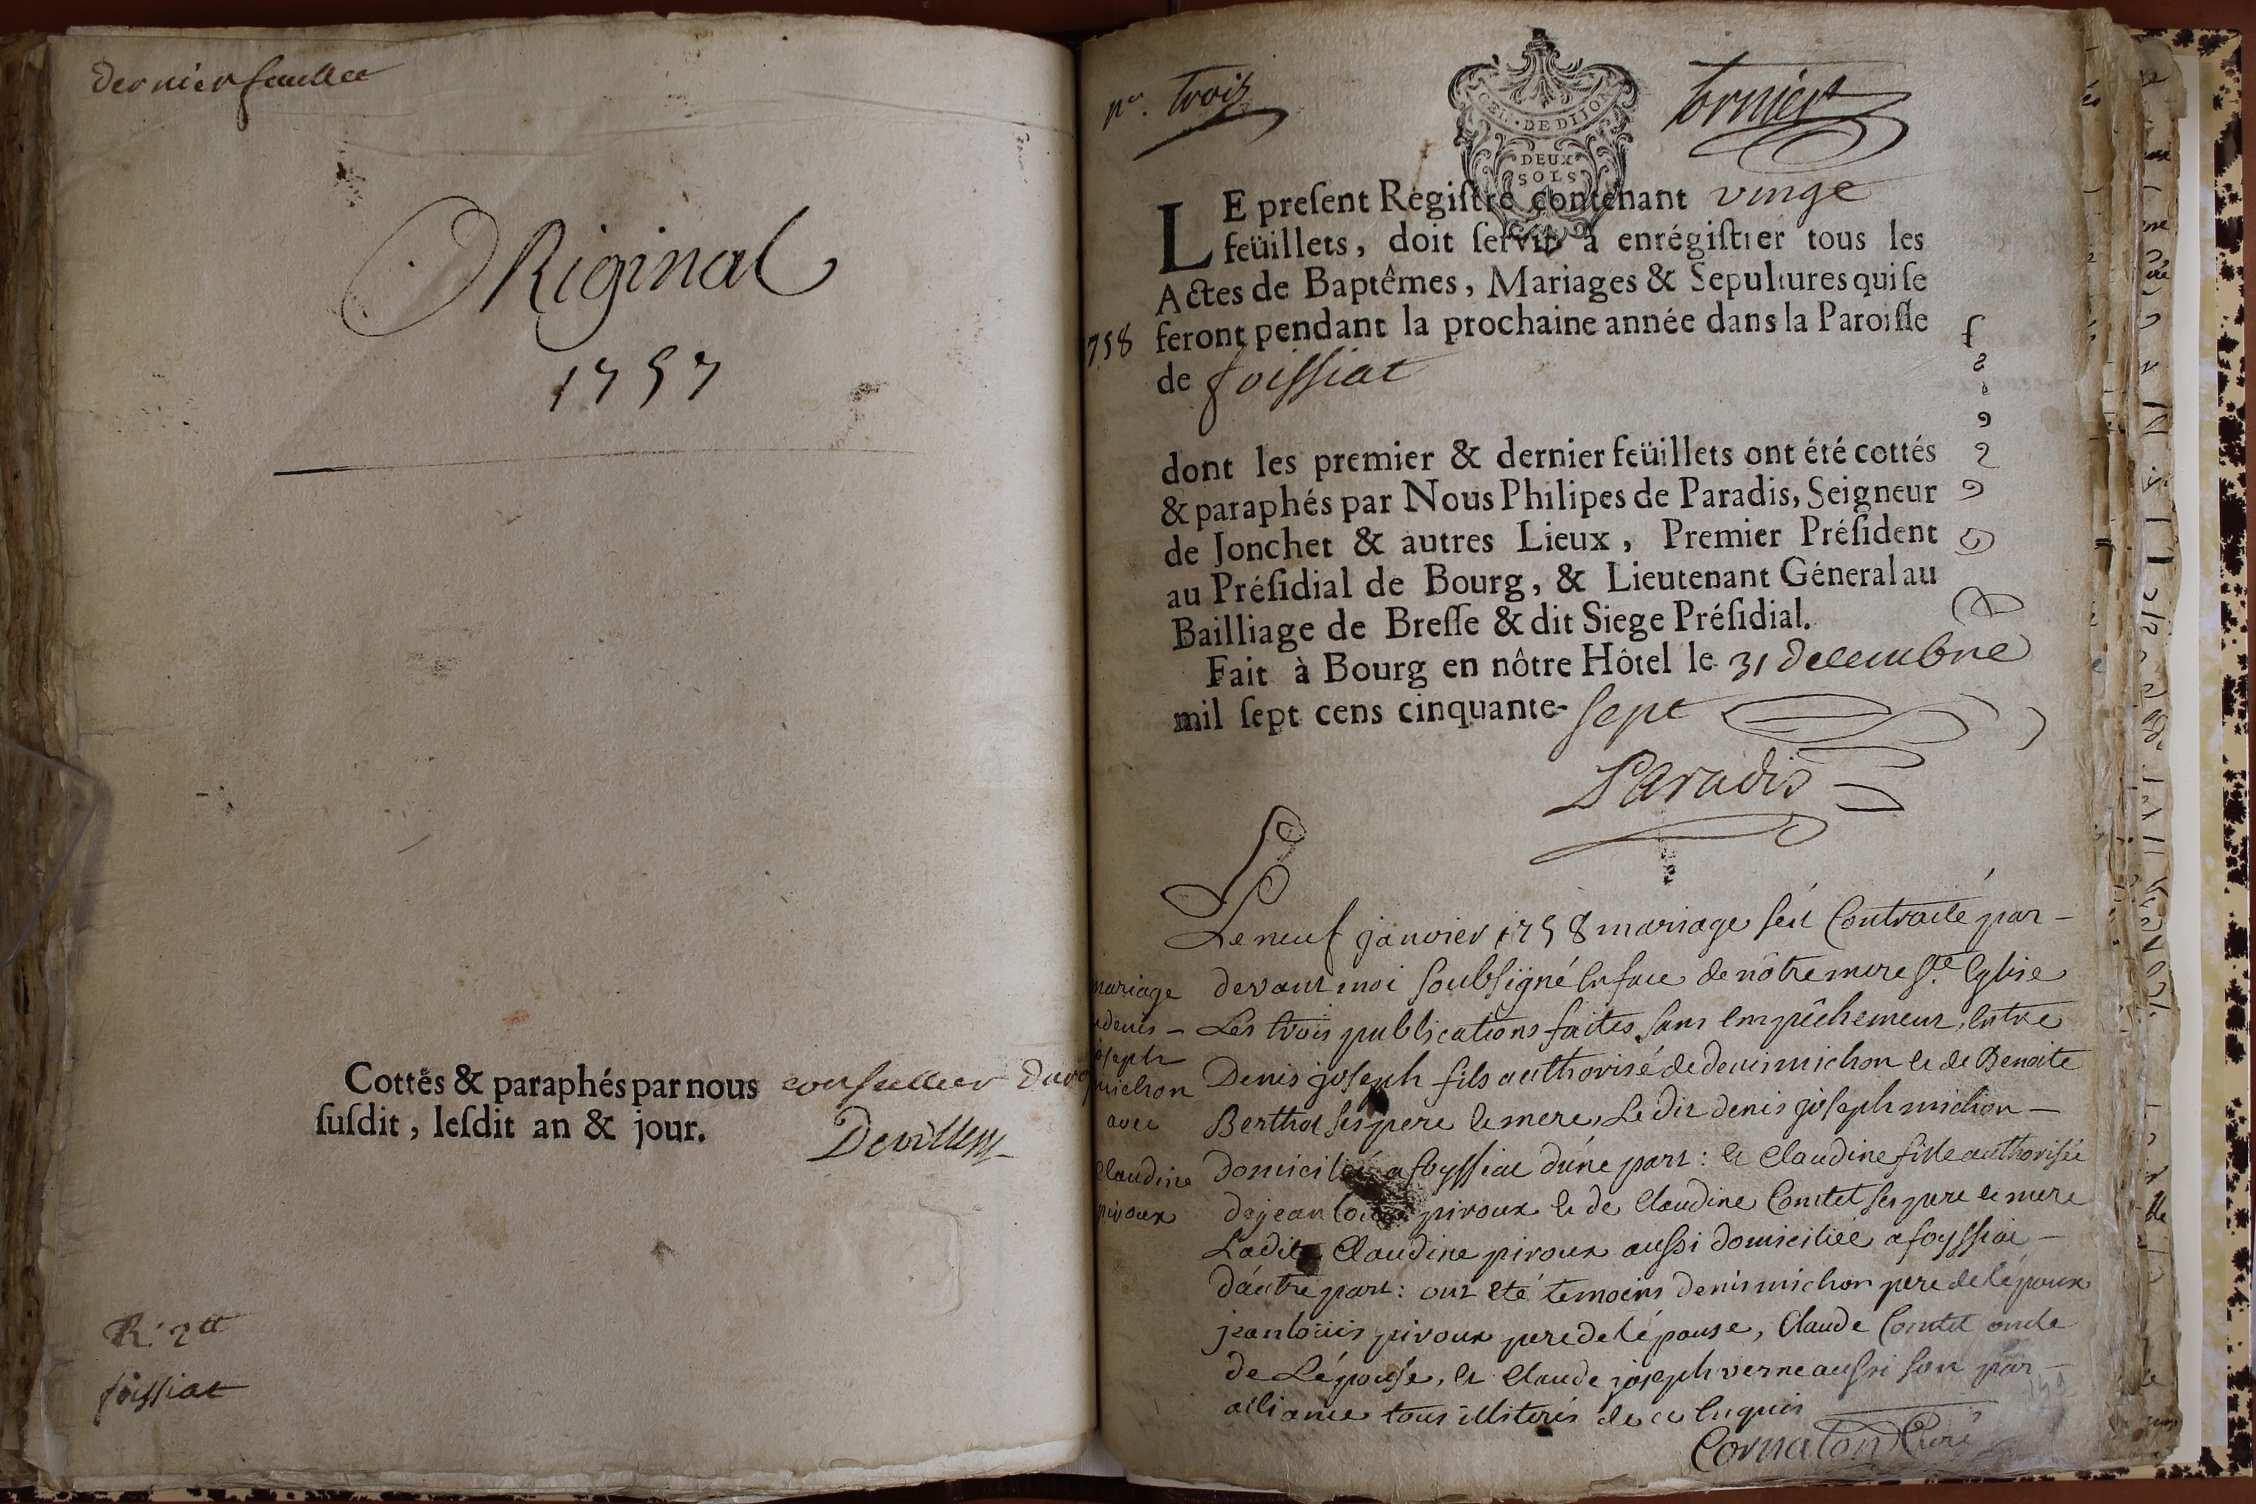 dernier feuillet
ORiginal
1757
Cottés & paraphés par nous conseiller
susdit, lesdit an & jour.
Devillers
R: 2tt
foissiat
pr. trois
GEL. DE DIJON
DEUX
SOLS
LE present Registre contenant vingt
feüillets, doit servir à enrégistrer tous les
Actes de Baptêmes, Mariages & Sepultures qui se
feront pendant la prochaine année dans la Paroisse
758
de foissiat
dont les premier & dernier feüillets ont été cottés
& paraphés par Nous Philipes de Paradis, Seigneur
de Jonchet & autres Lieux, Premier Président
au Présidial de Bourg, & Lieutenant Géneral au
Bailliage de Bresse & dit Siege Présidial.
Fait à Bourg en nôtre Hôtel le 31 decembre
mil sept cens cinquante-sept
Paradis
Le neuf janvier 1758 mariage feu Contracté par-
devant moi soubsigné en face de nôtre mere Ste Eglise
Les trois publications faites sans empêchement, entre
Denis joseph fils authorisé de denis michon et de Benoite
Berthet ses pere et mere, Le dit denis joseph michon-
domicilié a foyssiat d'une part: et Claudine fille authorisée
de jean louis piroux et de Claudine Comtet ses pere et mere
Ladite Claudine piroux aussi domiciliée a foyssiat-
d'autre part: ont eté temoins denis michon pere de l'époux
jean loüis piroux pere de l'épouse, Claude Comtet oncle
de L'épouse, et Claude joseph verne aussi son par
alliance tous illiterés de ce enquis
Cornaton Curé
mariage
denis-
joseph
michon
avec
Claudine
piroux